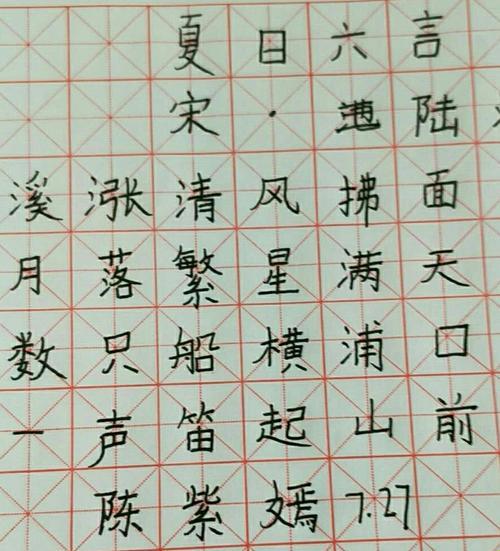 夏日六言
宋·陆
溪涨清风拂面
月落繁星满天
数只船横浦口
一声笛起山前
陈紫嫣 7.27